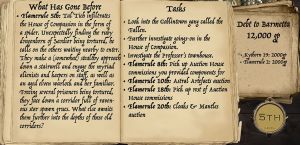 What Has Gone Before
Flamerule 5th: Tal'Tich infiltrates
the House of Compassion in the form of
a spider. Unexpectedly finding the ruby
dragonborn of being tortured, he
calls on the others waiting nearby to enter.
They make a (somewhat) stealthy approach
down a stairwell and engage the myriad
alienists and keepers on staff, as well as
an aged elven warlock, and her familiar.
Freeing several prisoners being tortured,
they face down a corridor full of
star spawn grues. What else awaits
them further into the depths of these dark
corridors?
Tasks
Look into the Collintown gang called the
Fallen.
Further investigate goings-on in the
House of Compassion.
Investigate the Professor's townhouse.
Flamerule 8th: Pick up Auction House
commissions you provided components for
Flamerule 10th: Astral Artifacts auction
Flamerule 18th: Pick up rest of Auction
House commissions
Flamerule 20th: Cloaks & Mantles
auction
Debt to Barnetta
12,000 gp
- Kythorn 19: 1000gp
- Flamerule 2: 1000gp
5TH